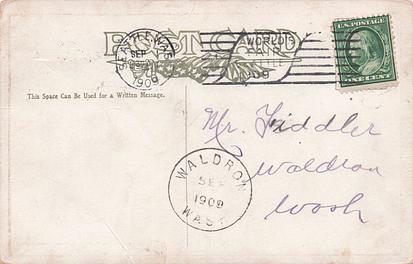 POST CARD
SEATTLE, WASH.
SEP
1909
WORLD'S
FAIR
SEATTLE
1909
U.S. POSTAGE
ONE CENT
This Space Can Be Used for a Written Message.
Mr. Fiddler
Waldron
Wash
WALDRON
SEP
1909
WASH.